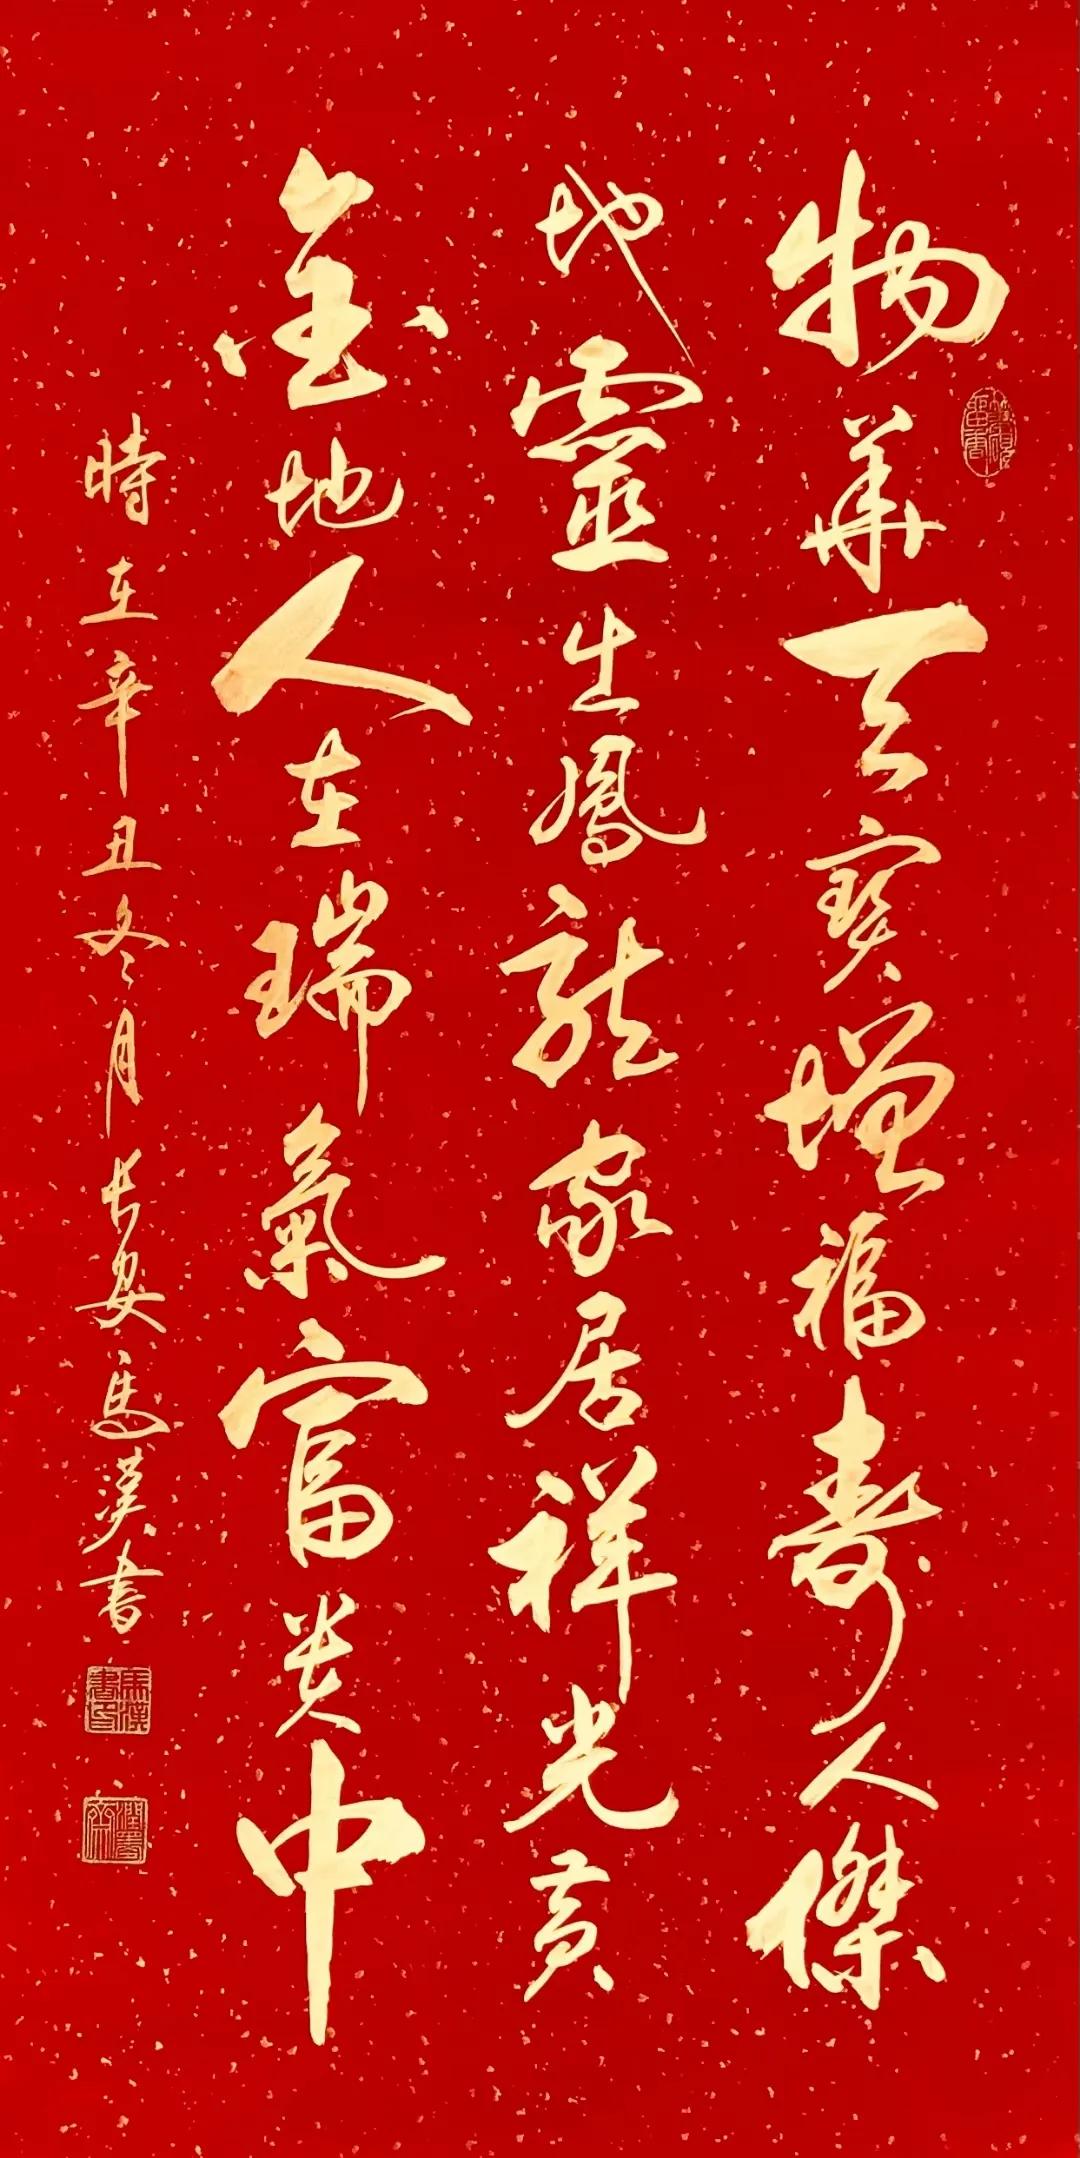 物華天寶增福壽人傑
地靈生鳳龍家居祥光黄
金地人在瑞氣富貴中
時在辛丑冬月長安馬漢書
馬漢書印